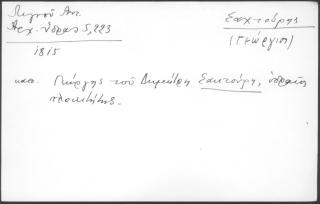 Λιγνού Αντ.
Αρχ. Ύδρας 5, 223
1815
Σαχτούρης
(Γεώργιος)
Γιώργης του Δημήτρη Σαχτούρη, υδραίος
πλοικτήτης.